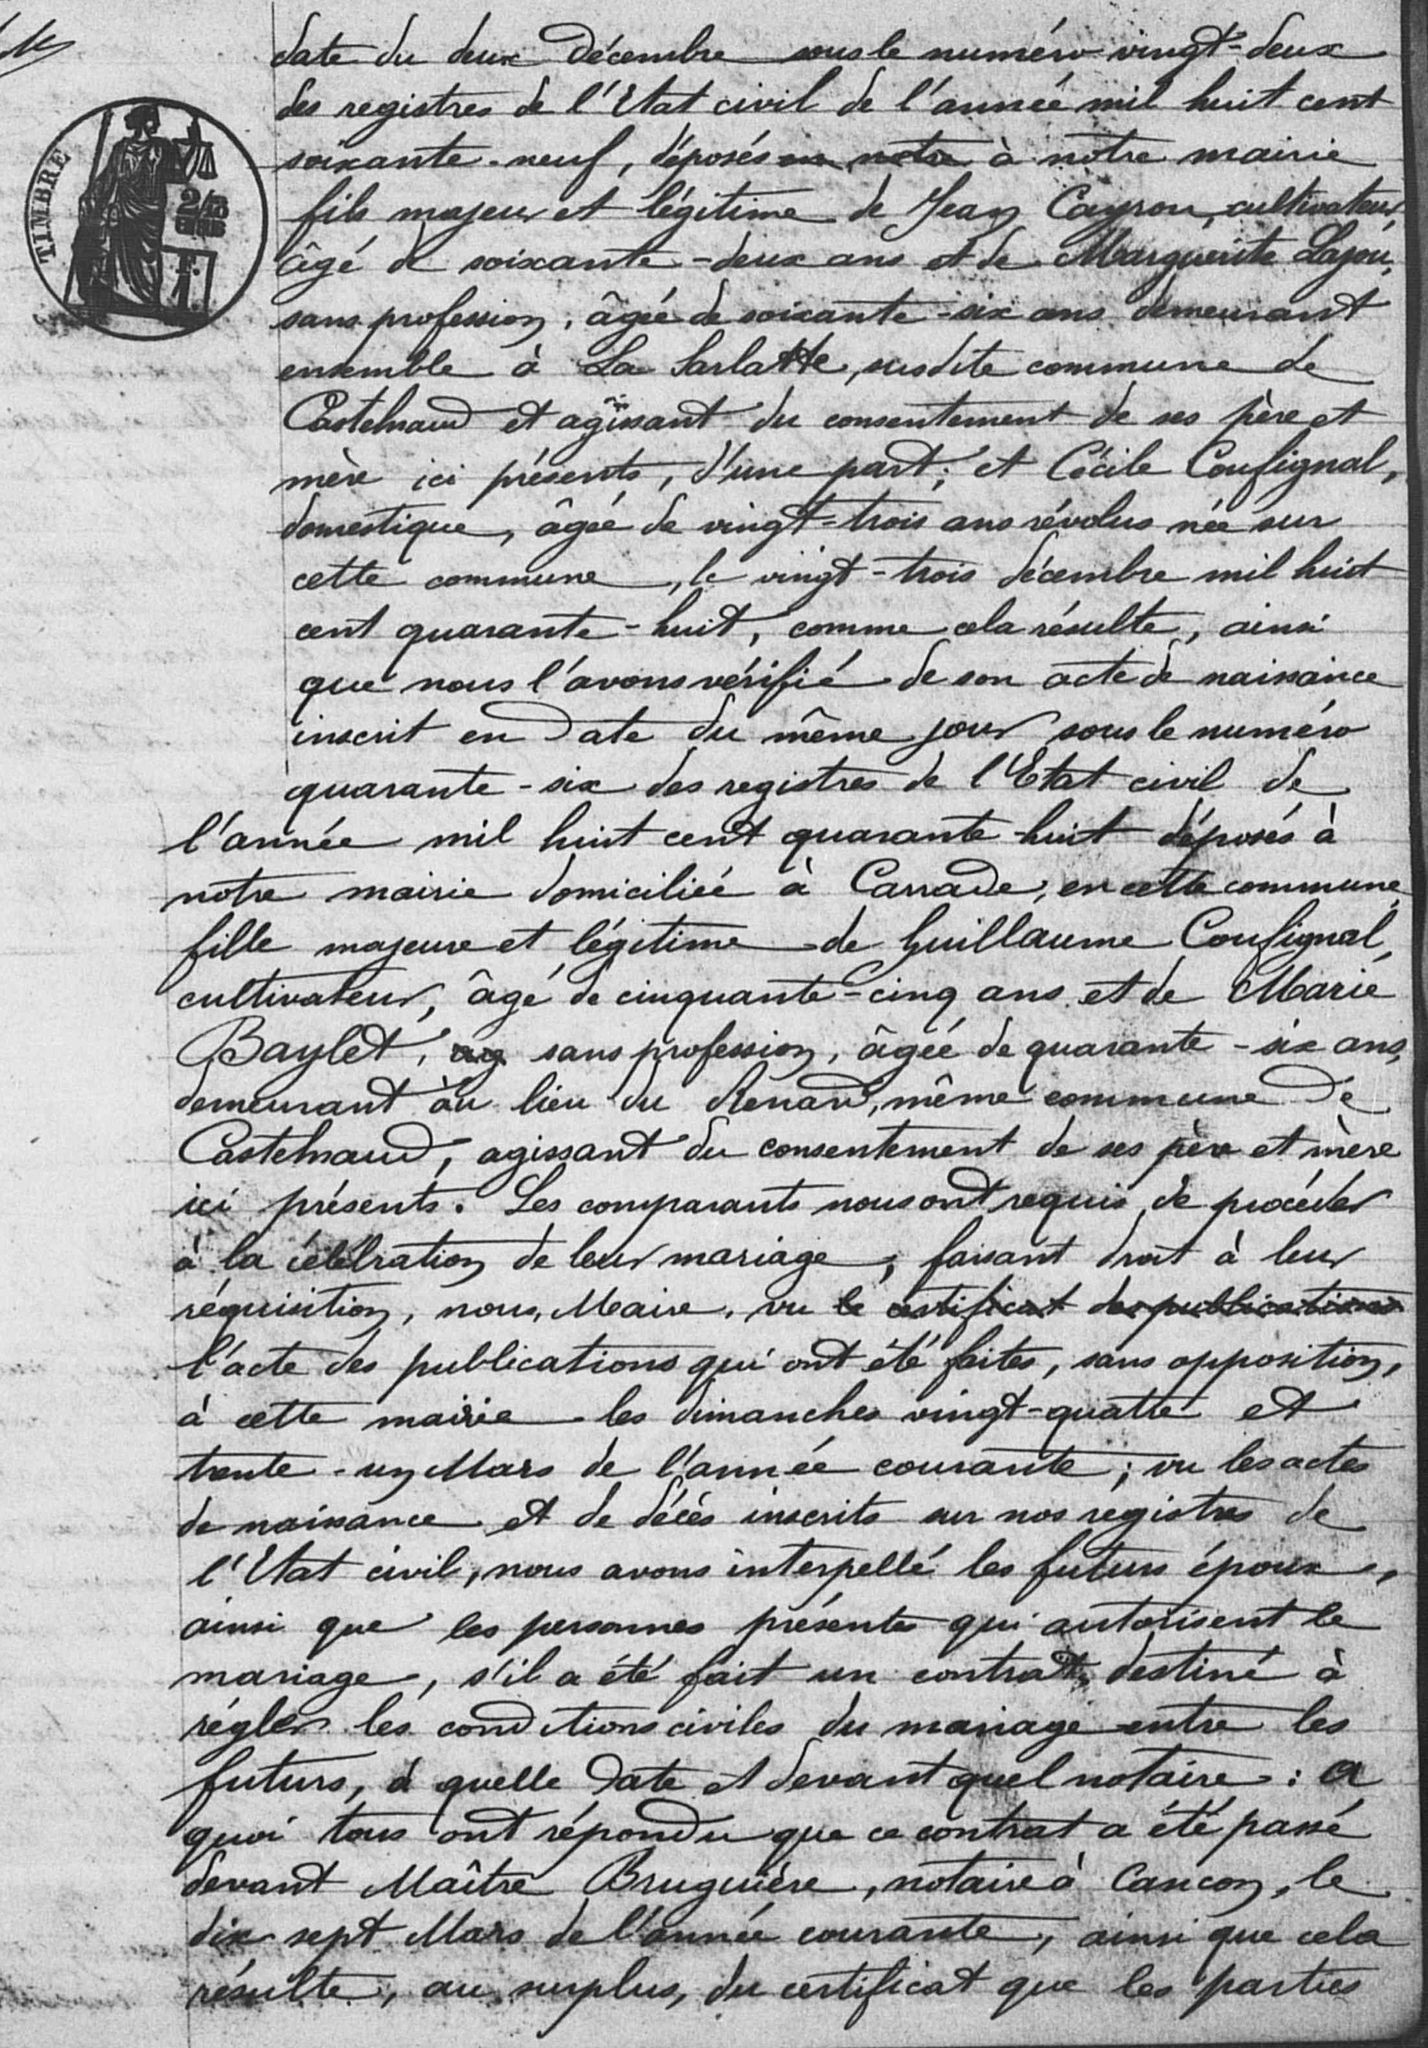 TIMBRE
date du deux Décembre sous le numéro vingt-deux
des registres de l'Etat civil de l'année mil huit cent
soixante-neuf, déposés en notre à notre mairie
fils majeur et légitime de Jean Cayrou, cultivateur,
âgé de soixante-deux ans et de Marguerite Lajou,
sans profession, âgée de soixante-six ans demeurant
ensemble à La Sarlatte, susdite commune de
Castelnaud et agissant du consentement de ses père et
mère ici présents, d'une part; et Cécile Coufignal,
domestique, âgée de vingt-trois ans révolus née sur
cette commune, le vingt-trois décembre mil huit
cent quarante-huit, comme cela résulte, ainsi
que nous l'avons vérifié de son acte de naissance
inscrit en date du même jour sous le numéro
quarante-six des registres de l'Etat civil de
l'année mil huit cent quarante huit déposés à
notre mairie domiciliée à Carrade, en cette commune,
fille majeure et légitime de Guillaume Coufignal,
cultivateur, âgé de cinquante-cinq ans et de Marie
Baylet, sans profession, âgée de quarante-six ans,
demeurant au lieu du Renard, même commune de
Castelnaud, agissant du consentement de ses père et mère
ici présents. Les comparants nous ont requis de procéder
à la célébration de leur mariage, faisant droit à leur
réquisition, nous, Maire, vu le certificat des publications
l'acte des publications qui ont été faites, sans opposition,
à cette mairie les dimanches vingt-quatre et
trente-un Mars de l'année courante; vu les actes
de naissance et de décès inscrits sur nos registres de
l'Etat civil, nous avons interpellé les futurs époux,
ainsi que les personnes présentes qui autorisent le
mariage, s'il a été fait un contrat destiné à
régler les conditions civiles du mariage entre les
futurs, à quelle date et devant quel notaire: A
quoi tous ont répondu que ce contrat a été passé
devant Maître Bruguière, notaire à Cancon, le
dix sept Mars de l'année courante, ainsi que cela
résulte, au surplus, du certificat que les parties